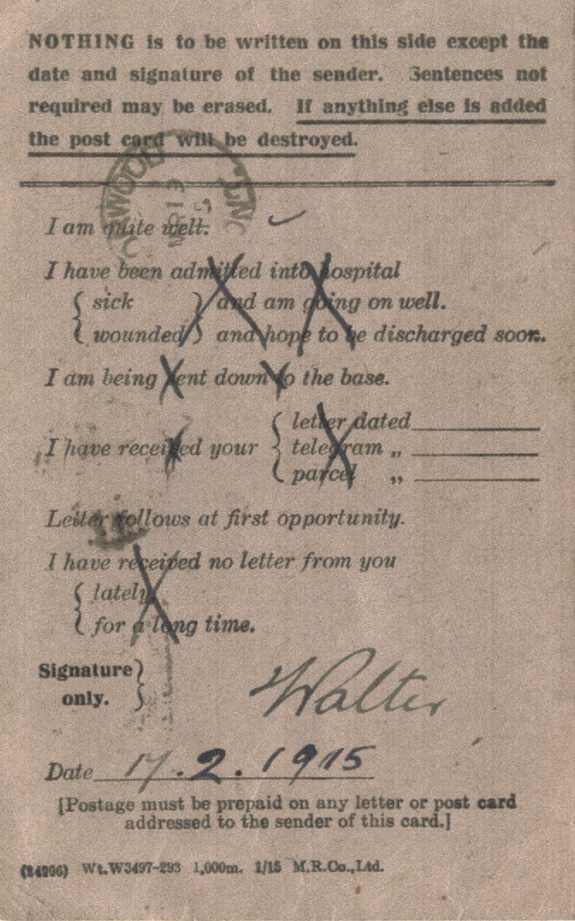 NOTHING is to be written on this side except the
date and signature of the sender. Sentences not
required may be erased. If anything else is added
the post card will be destroyed.
I am quite well.
I have been admitted into hospital
sick and am going on well.
wounded and hope to be discharged soon.
I am being sent down to the base.
letter dated
I have received your telegram „
parcel „
Letter follows at first opportunity.
I have received no letter from you
lately
for a long time.
Signature
only.
Walter
Date 17.2.1915
[Postage must be prepaid on any letter or post card
addressed to the sender of this card.]
Wt.W3497-293 1,000m. 1/15 M.R.Co.,Ltd.